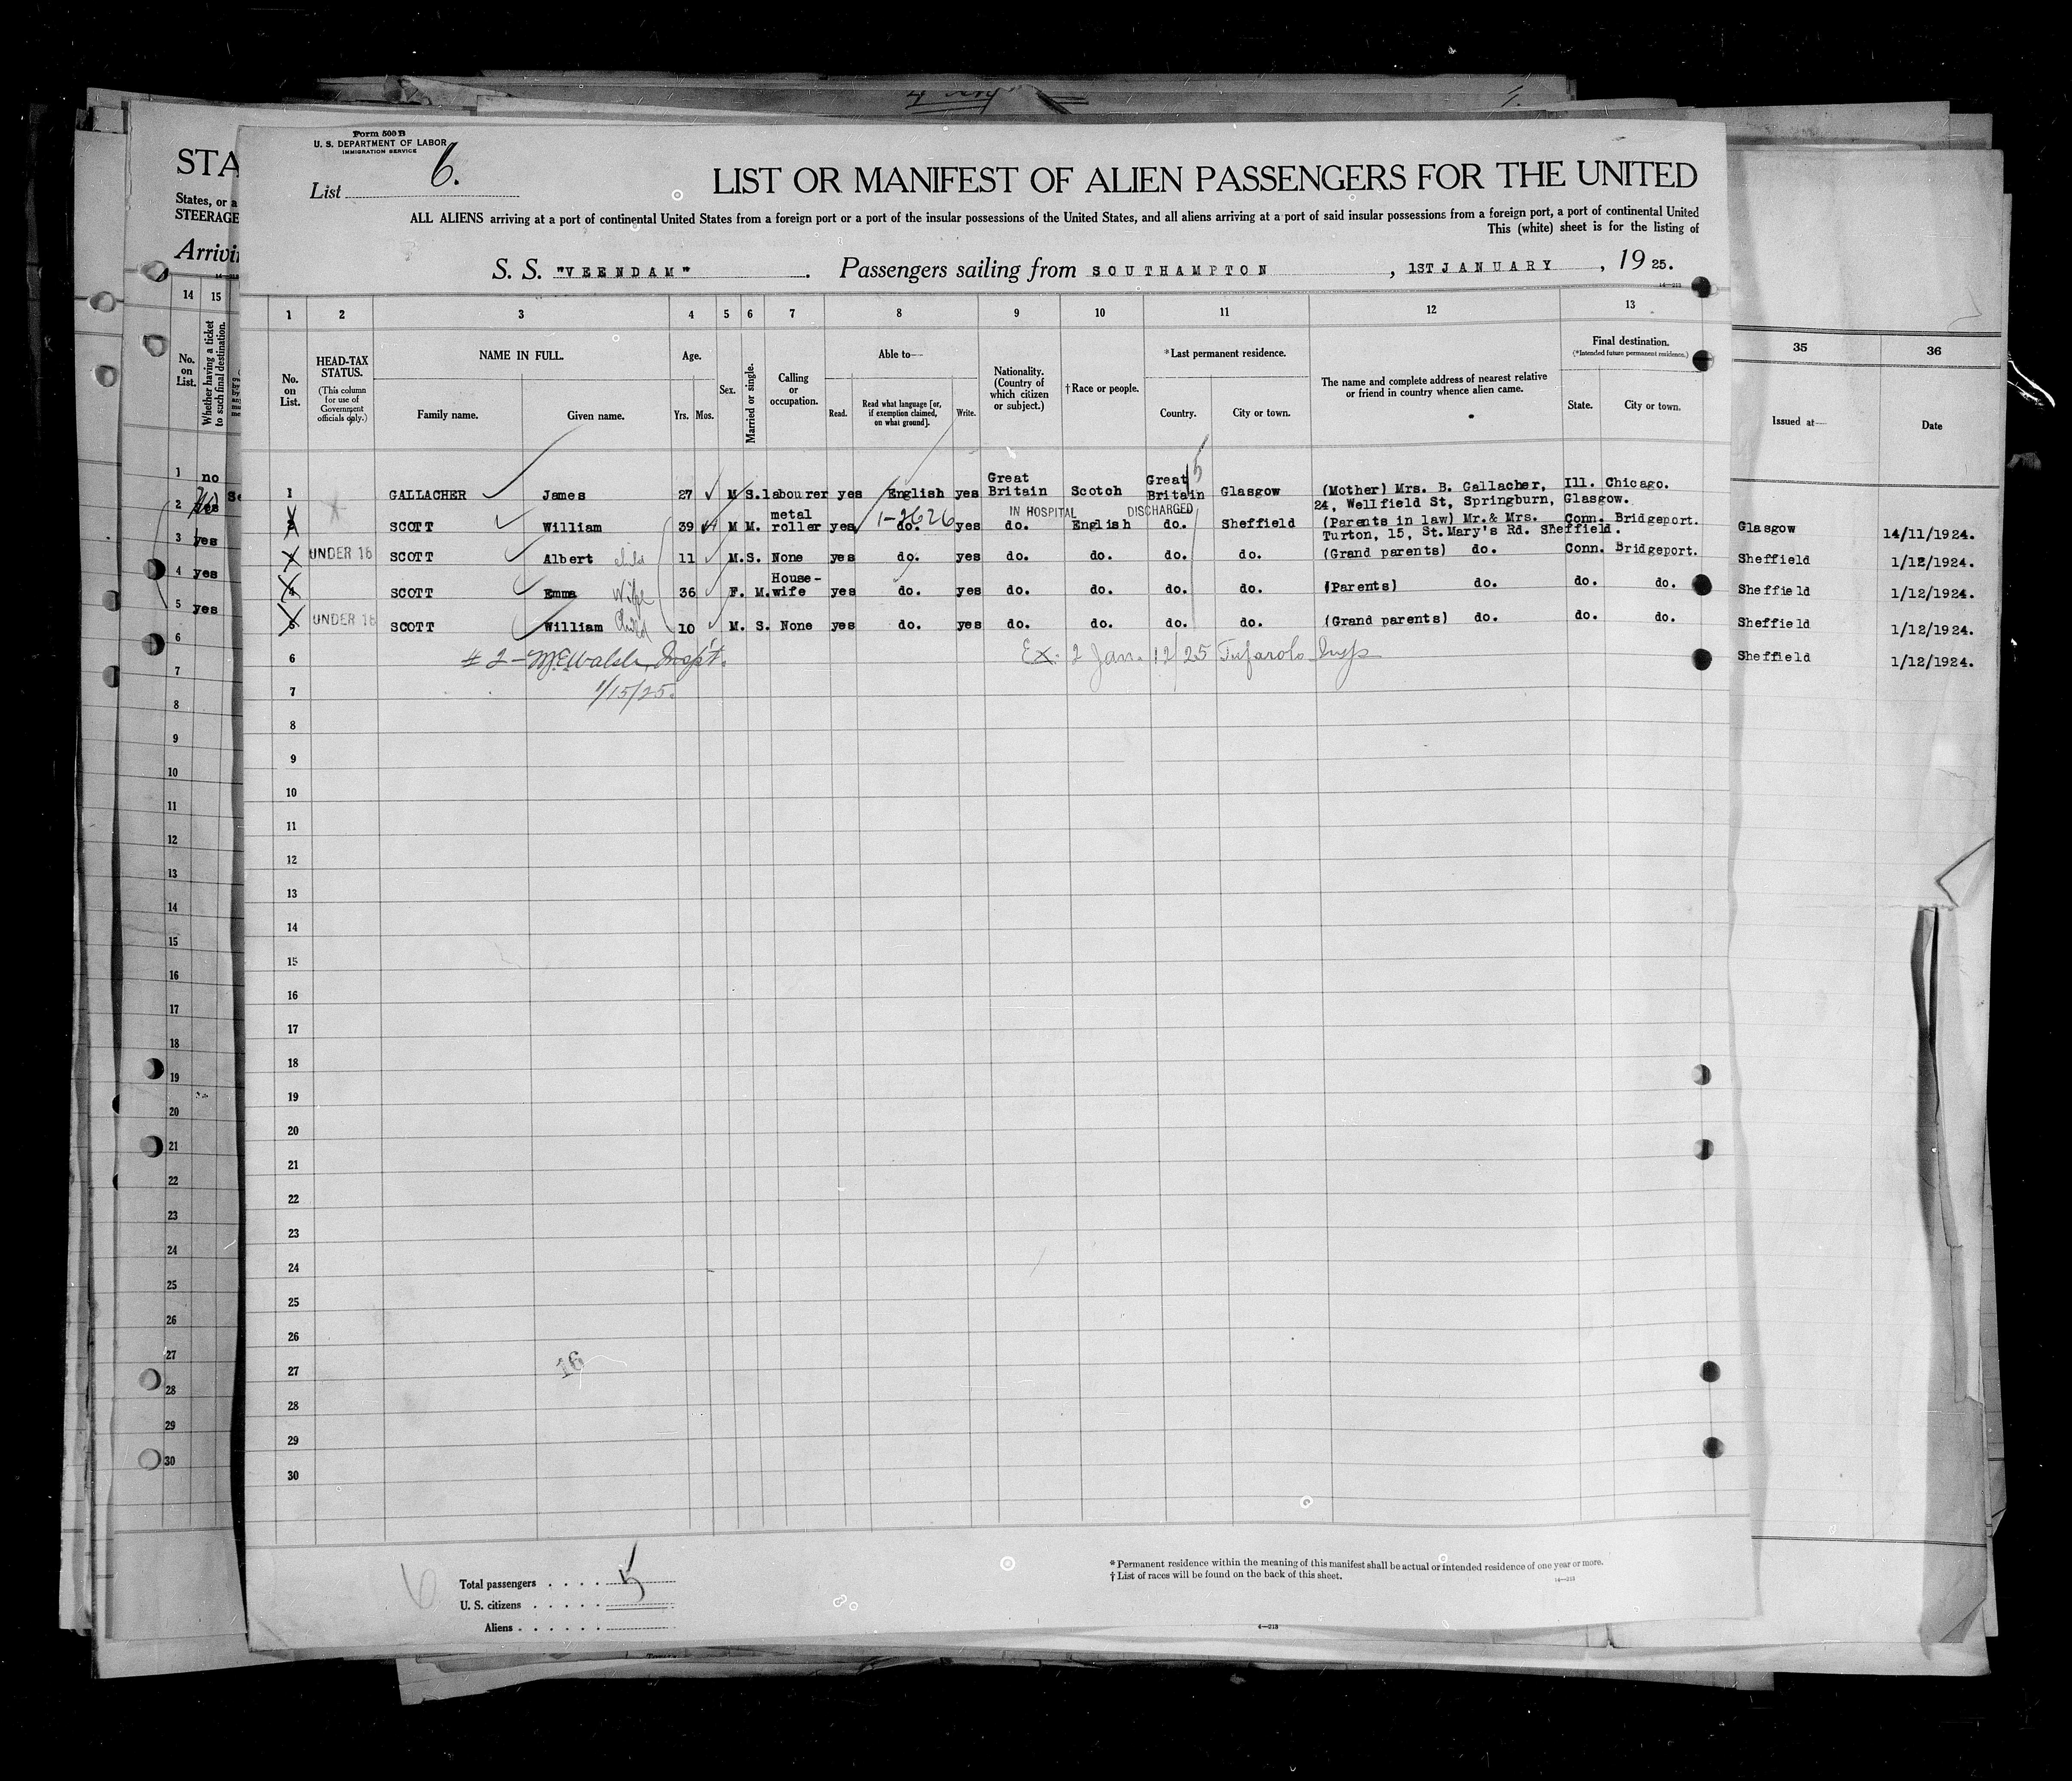 Form 500 B
U. S. DEPARTMENT OF LABOR
IMMIGRATION SERVICE
List 6.
LIST OR MANIFEST OF ALIEN PASSENGERS FOR THE UNITED
ALL ALIENS arriving at a port of continental United States from a foreign port or a port of the insular possessions of the United States, and all aliens arriving at a port of said insular possessions from a foreign port, a port of continental United
This (white) sheet is for the listing of
S. S. "VEENDAM". Passengers sailing from SOUTHAMPTON, 1ST JANUARY, 19 25.
14—213
STA
States, or a
STEERAGE
Arrivin
14 15
No. on List.
Whether having a ticket to such final destination.
1 2 3 4 5 6 7 8 9 10 11 12 13
No. on List.
HEAD-TAX STATUS.
(This column for use of Government officials only.)
NAME IN FULL.
Family name. Given name.
Age.
Yrs. Mos.
Sex.
Married or single.
Calling or occupation.
Able to—
Read. Read what language [or, if exemption claimed, on what ground]. Write.
Nationality. (Country of which citizen or subject.)
†Race or people.
*Last permanent residence.
Country. City or town.
The name and complete address of nearest relative or friend in country whence alien came.
Final destination.
(*Intended future permanent residence.)
State. City or town.
35 36
Issued at— Date
1 GALLACHER James 27 M S. labourer yes English yes Great Britain Scotch Great Britain Glasgow (Mother) Mrs. B. Gallacher, Ill. Chicago.
24, Wellfield St, Springburn, Glasgow.
1-2626 IN HOSPITAL DISCHARGED
2 SCOTT William 39 M M. metal roller yes do. yes do. English do. Sheffield (Parents in law) Mr. & Mrs. Conn. Bridgeport.
Turton, 15, St. Mary's Rd. Sheffield.
3 UNDER 16 SCOTT Albert child 11 M. S. None yes do. yes do. do. do. do. (Grand parents) do. Conn. Bridgeport.
4 SCOTT Emma Wife 36 F. M. House-wife yes do. yes do. do. do. do. (Parents) do. do. do.
5 UNDER 16 SCOTT William Child 10 M. S. None yes do. yes do. do. do. do. (Grand parents) do. do. do.
6 # 2 - Insp't. Ex. 2 Jan. 12/25 Insp
7 1/15/25.
8
9
10
11
12
13
14
15
16
17
18
19
20
21
22
23
24
25
26
27
28
29
30
16
1 no
2 yes
3 yes
4 yes
5 yes
6
7
8
9
10
11
12
13
14
15
16
17
18
19
20
21
22
23
24
25
26
27
28
29
30
Glasgow 14/11/1924.
Sheffield 1/12/1924.
Sheffield 1/12/1924.
Sheffield 1/12/1924.
Sheffield 1/12/1924.
6
Total passengers . . . . 5
U. S. citizens . . . . .
Aliens . . . . . .
* Permanent residence within the meaning of this manifest shall be actual or intended residence of one year or more.
† List of races will be found on the back of this sheet.
14—213